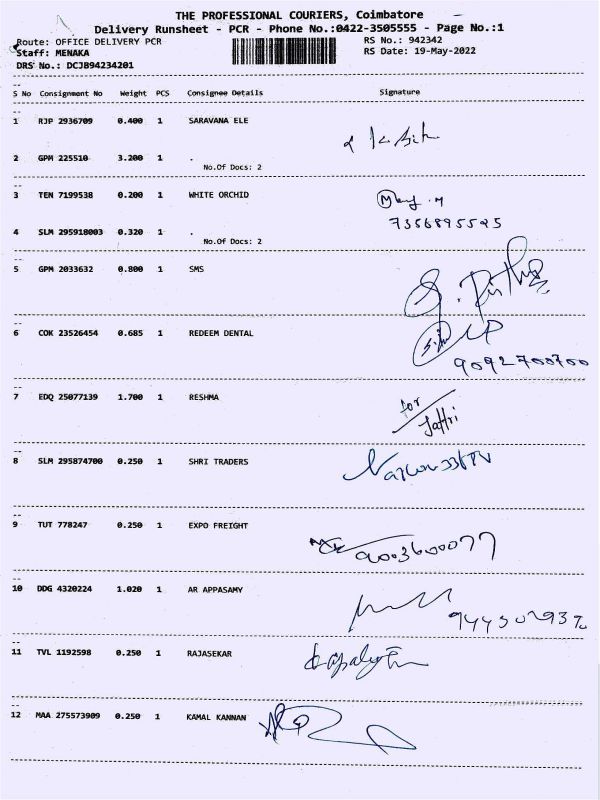 THE PROFESSIONAL COURIERS, Coimbatore
Delivery Runsheet - PCR - Phone No.:0422-3505555 - Page No.:1
Route: OFFICE DELIVERY PCR RS No.: 942342
Staff: MENAKA RS Date: 19-May-2022
DRS No.: DCJB94234201
S No Consignment No Weight PCS Consignee Details Signature
1 RJP 2936709 0.400 1 SARAVANA ELE
2 GPM 225510 3.200 1 .
No.Of Docs: 2
3 TEN 7199538 0.200 1 WHITE ORCHID
7356895525
4 SLM 295918003 0.320 1 .
No.Of Docs: 2
5 GPM 2033632 0.800 1 SMS
6 COK 23526454 0.685 1 REDEEM DENTAL
9092700700
7 EDQ 25077139 1.700 1 RESHMA
for
8 SLM 295874700 0.250 1 SHRI TRADERS
9 TUT 778247 0.250 1 EXPO FREIGHT
9003600077
10 DDG 4320224 1.020 1 AR APPASAMY
11 TVL 1192598 0.250 1 RAJASEKAR
12 MAA 275573909 0.250 1 KAMAL KANNAN